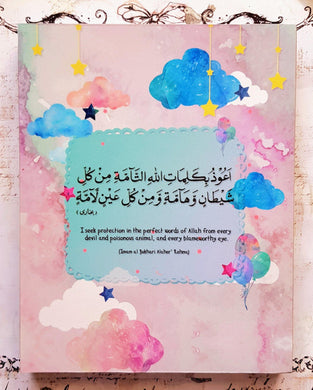 اَعُوْذُ بِكَلِمَاتِ اللّٰهِ التَّآمَّةِ مِنْ كُلِّ
شَيْطَانٍ وَّهَامَّةٍ وَّمِنْ كُلِّ عَيْنٍ لَّآمَّةٍ
(بخاری)
I seek protection in the perfect words of Allah from every
devil and poisonous animal, and every blameworthy eye.
(Imam al Bukhari